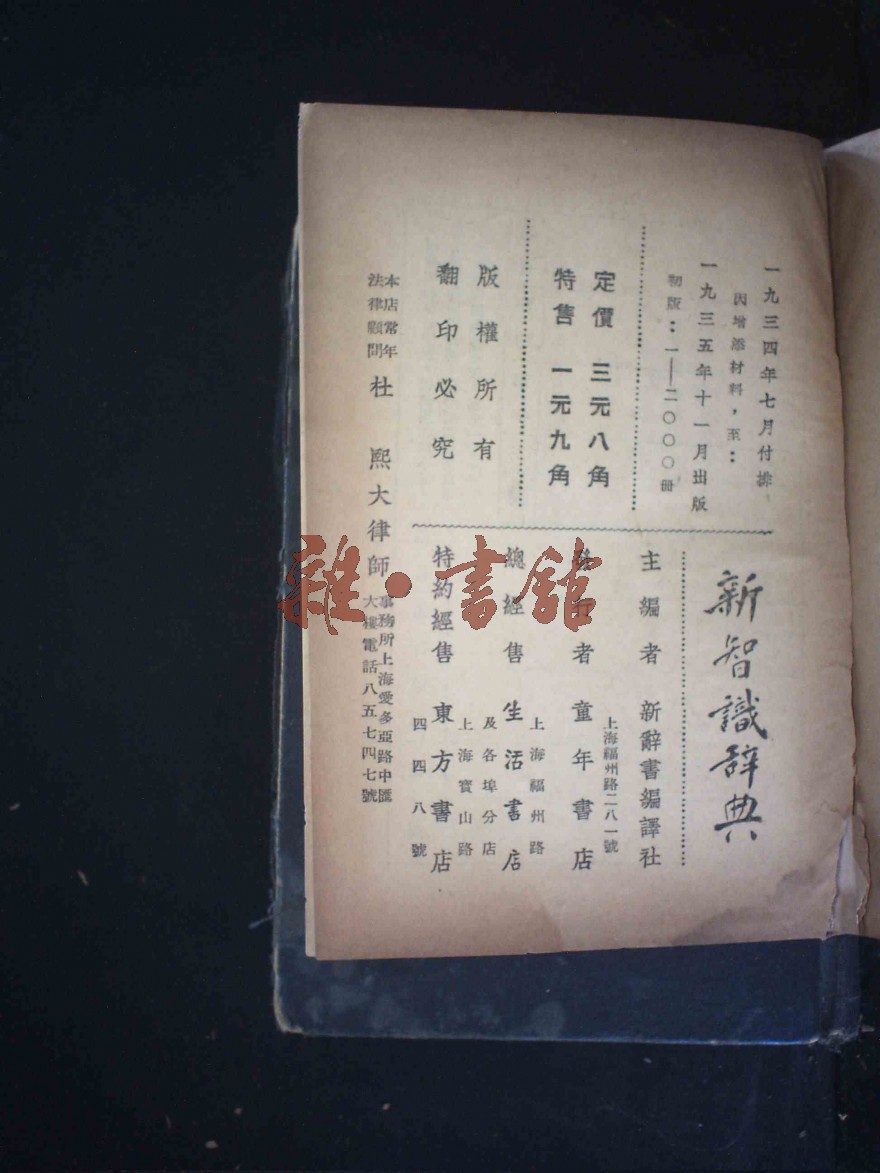 一九三四年七月付排
因增添材料，至：
一九三五年十一月出版
初版：一——二〇〇〇冊
定價 三元八角
特售 一元九角
版權所有
翻印必究
新智識辞典
主編者 新辭書編譯社
上海福州路二八一號
發行者 童年書店
上海福州路
總經售 生活書店
及各埠分店
上海寶山路
特約經售 東方書店
四四八號
本店常年
法律顧問
杜 熙大律師
事務所上海愛多亞路中匯
大樓電話八五七四七號
雜·書館